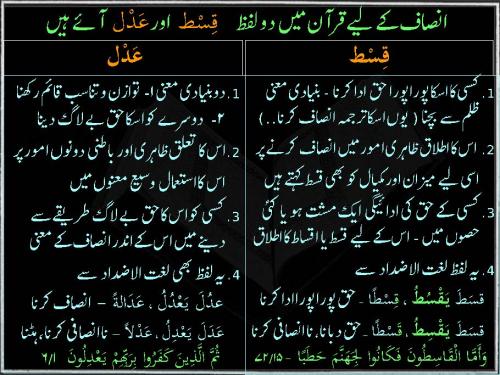 انصاف کے لیے قرآن میں دو لفظ قِسْط اور عَدْل آئے ہیں
قِسْط
1. کسی کا اسکا پورا پورا حق ادا کرنا - بنیادی معنی
ظلم سے بچنا (یوں اسکا ترجمہ انصاف کرنا..)
2. اس کا اطلاق ظاہری امور میں انصاف کرنے پر
اسی لیے میزان اور کیال کو بھی قسط کہتے ہیں
3. کسی کے حق کی ادائیگی ایک مشت ہو یا کئی
حصوں میں - اس کے لیے قسط یا اقساط کا اطلاق
4. یہ لفظ لغت الاضداد سے
قَسَطَ يَقْسُطُ ، قِسْطًا - حق پورا پورا ادا کرنا
قَسَطَ يَقْسِطُ ، قَسْطًا - حق دبانا، ناانصافی کرنا
وَأَمَّا الْقَاسِطُونَ فَكَانُوا لِجَهَنَّمَ حَطَبًا - ۷۲/۱۵
عَدْل
1. دو بنیادی معنی ۱- توازن و تناسب قائم رکھنا
۲- دوسرے کو اسکا حق بے لاگ دینا
2. اس کا تعلق ظاہری اور باطنی دونوں امور پر
اس کا استعمال وسیع معنوں میں
3. کسی کو اس کا حق بے لاگ طریقے سے
دینے میں اس کے اندر انصاف کے معنی
4. یہ لفظ بھی لغت الاضداد سے
عَدَلَ يَعْدِلُ ، عَدَالَةً - انصاف کرنا
عَدَلَ يَعْدِلُ ، عَدْلاً - ناانصافی کرنا، ہٹنا
ثُمَّ الَّذِينَ كَفَرُوا بِرَبِّهِمْ يَعْدِلُونَ ۶/۱